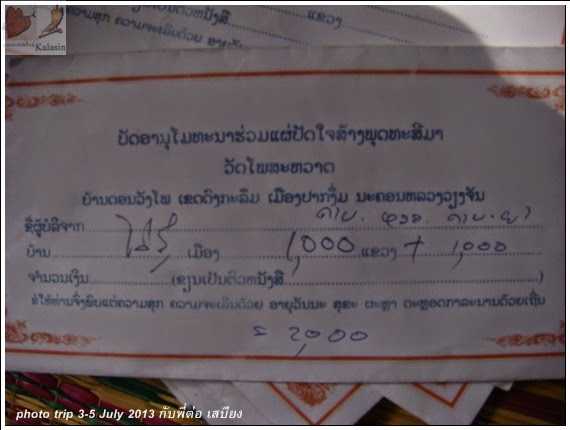 Kalasin
ຄວາມສຸກ ຄວາມຈະເລີນດ້ວຍ ອາຍຸ
ບັດອານຸໂມທະນາຮ່ວມແຜ່ປັດໃຈສ້າງພຸດທະສີມາ
ວັດໂພສະຫວາດ
ບ້ານດອນວັງໂພ ເຂດດົງກະລຶມ ເມືອງປາກງື່ມ ນະຄອນຫລວງວຽງຈັນ
ຊື່ຜູ້ບໍລິຈາກ
ບ້ານ ເມືອງ 1,000 ແຂວງ + 1,000
ຈຳນວນເງິນ (ຂຽນເປັນຕົວຫນັງສື )
ຂໍໃຫ້ທ່ານຈົ່ງພົບແຕ່ຄວາມສຸກ ຄວາມຈະເລີນດ້ວຍ ອາຍຸວັນນະ ສຸຂະ ຕະຫຼອດກາລະນານດ້ວຍເທີ້ນ
= 2,000
photo trip 3-5 July 2013 กับพี่ต่อ เสบียง